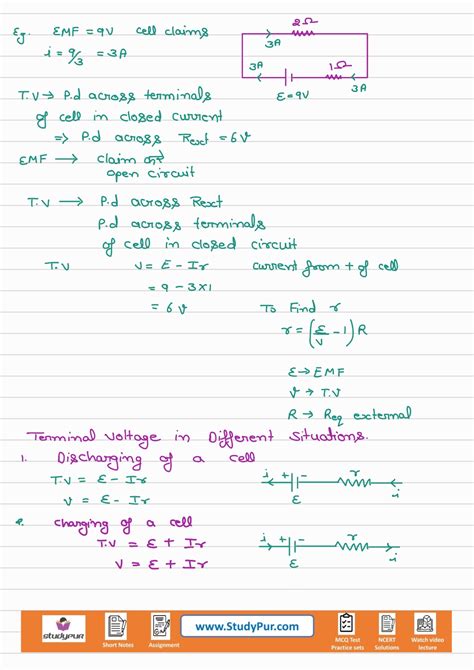 Eg. EMF = 9V cell claims
i = 9/3 = 3A
2Ω
3A
3A
1Ω
3A
ε = 9V
T.V → P.d across terminals
of cell in closed current
⇒ P.d across Rext = 6V
EMF → claim करे
open circuit
T.V → P.d across Rext
P.d across terminals
of cell in closed circuit
T.V V = E - Ir current from + of cell
= 9 - 3×1
= 6V
To Find r
r = (ε/V - 1) R
ε → EMF
V → T.V
R → Req external
Terminal Voltage in Different Situations.
1. Discharging of a cell
T.V = ε - Ir
V = ε - Ir
i + - r i
ε
2. Charging of a cell
T.V = ε + Ir
V = ε + Ir
i + - r i
ε
studyPur
Short Notes
Assignment
www.StudyPur.com
MCQ Test
Practice sets
NCERT
Solutions
Watch video
lecture